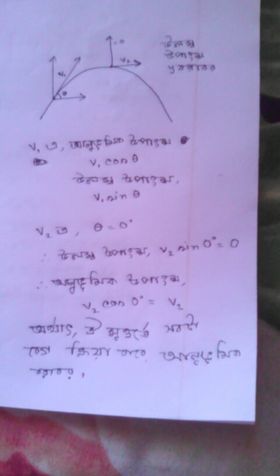 উলম্ব
উপাংশ
y বরাবর
v₁
θ
v₂
v₁ এ, আনুভূমিক উপাংশ
v₁ cosθ
উলম্ব উপাংশ,
v₁ sinθ
v₂ তে, θ = 0°
∴ উলম্ব উপাংশ, v₂ sin 0° = 0
∴ আনুভূমিক উপাংশ,
v₂ cos 0° = v₂
অর্থাৎ, ঐ মুহূর্তে সবটা
বেগ ক্রিয়া করে আনুভূমিক
বরাবর,